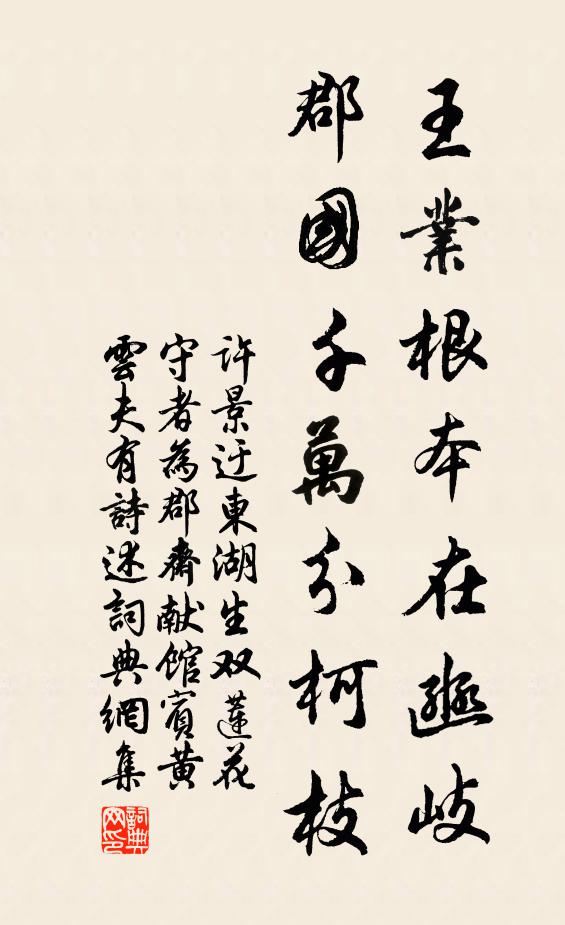 王業根本在豳岐
郡國千萬分柯枝
許景迂東湖生双蓮花
守者為郡齋献館賓黄
雲夫有詩述詞典網集
詞典网印